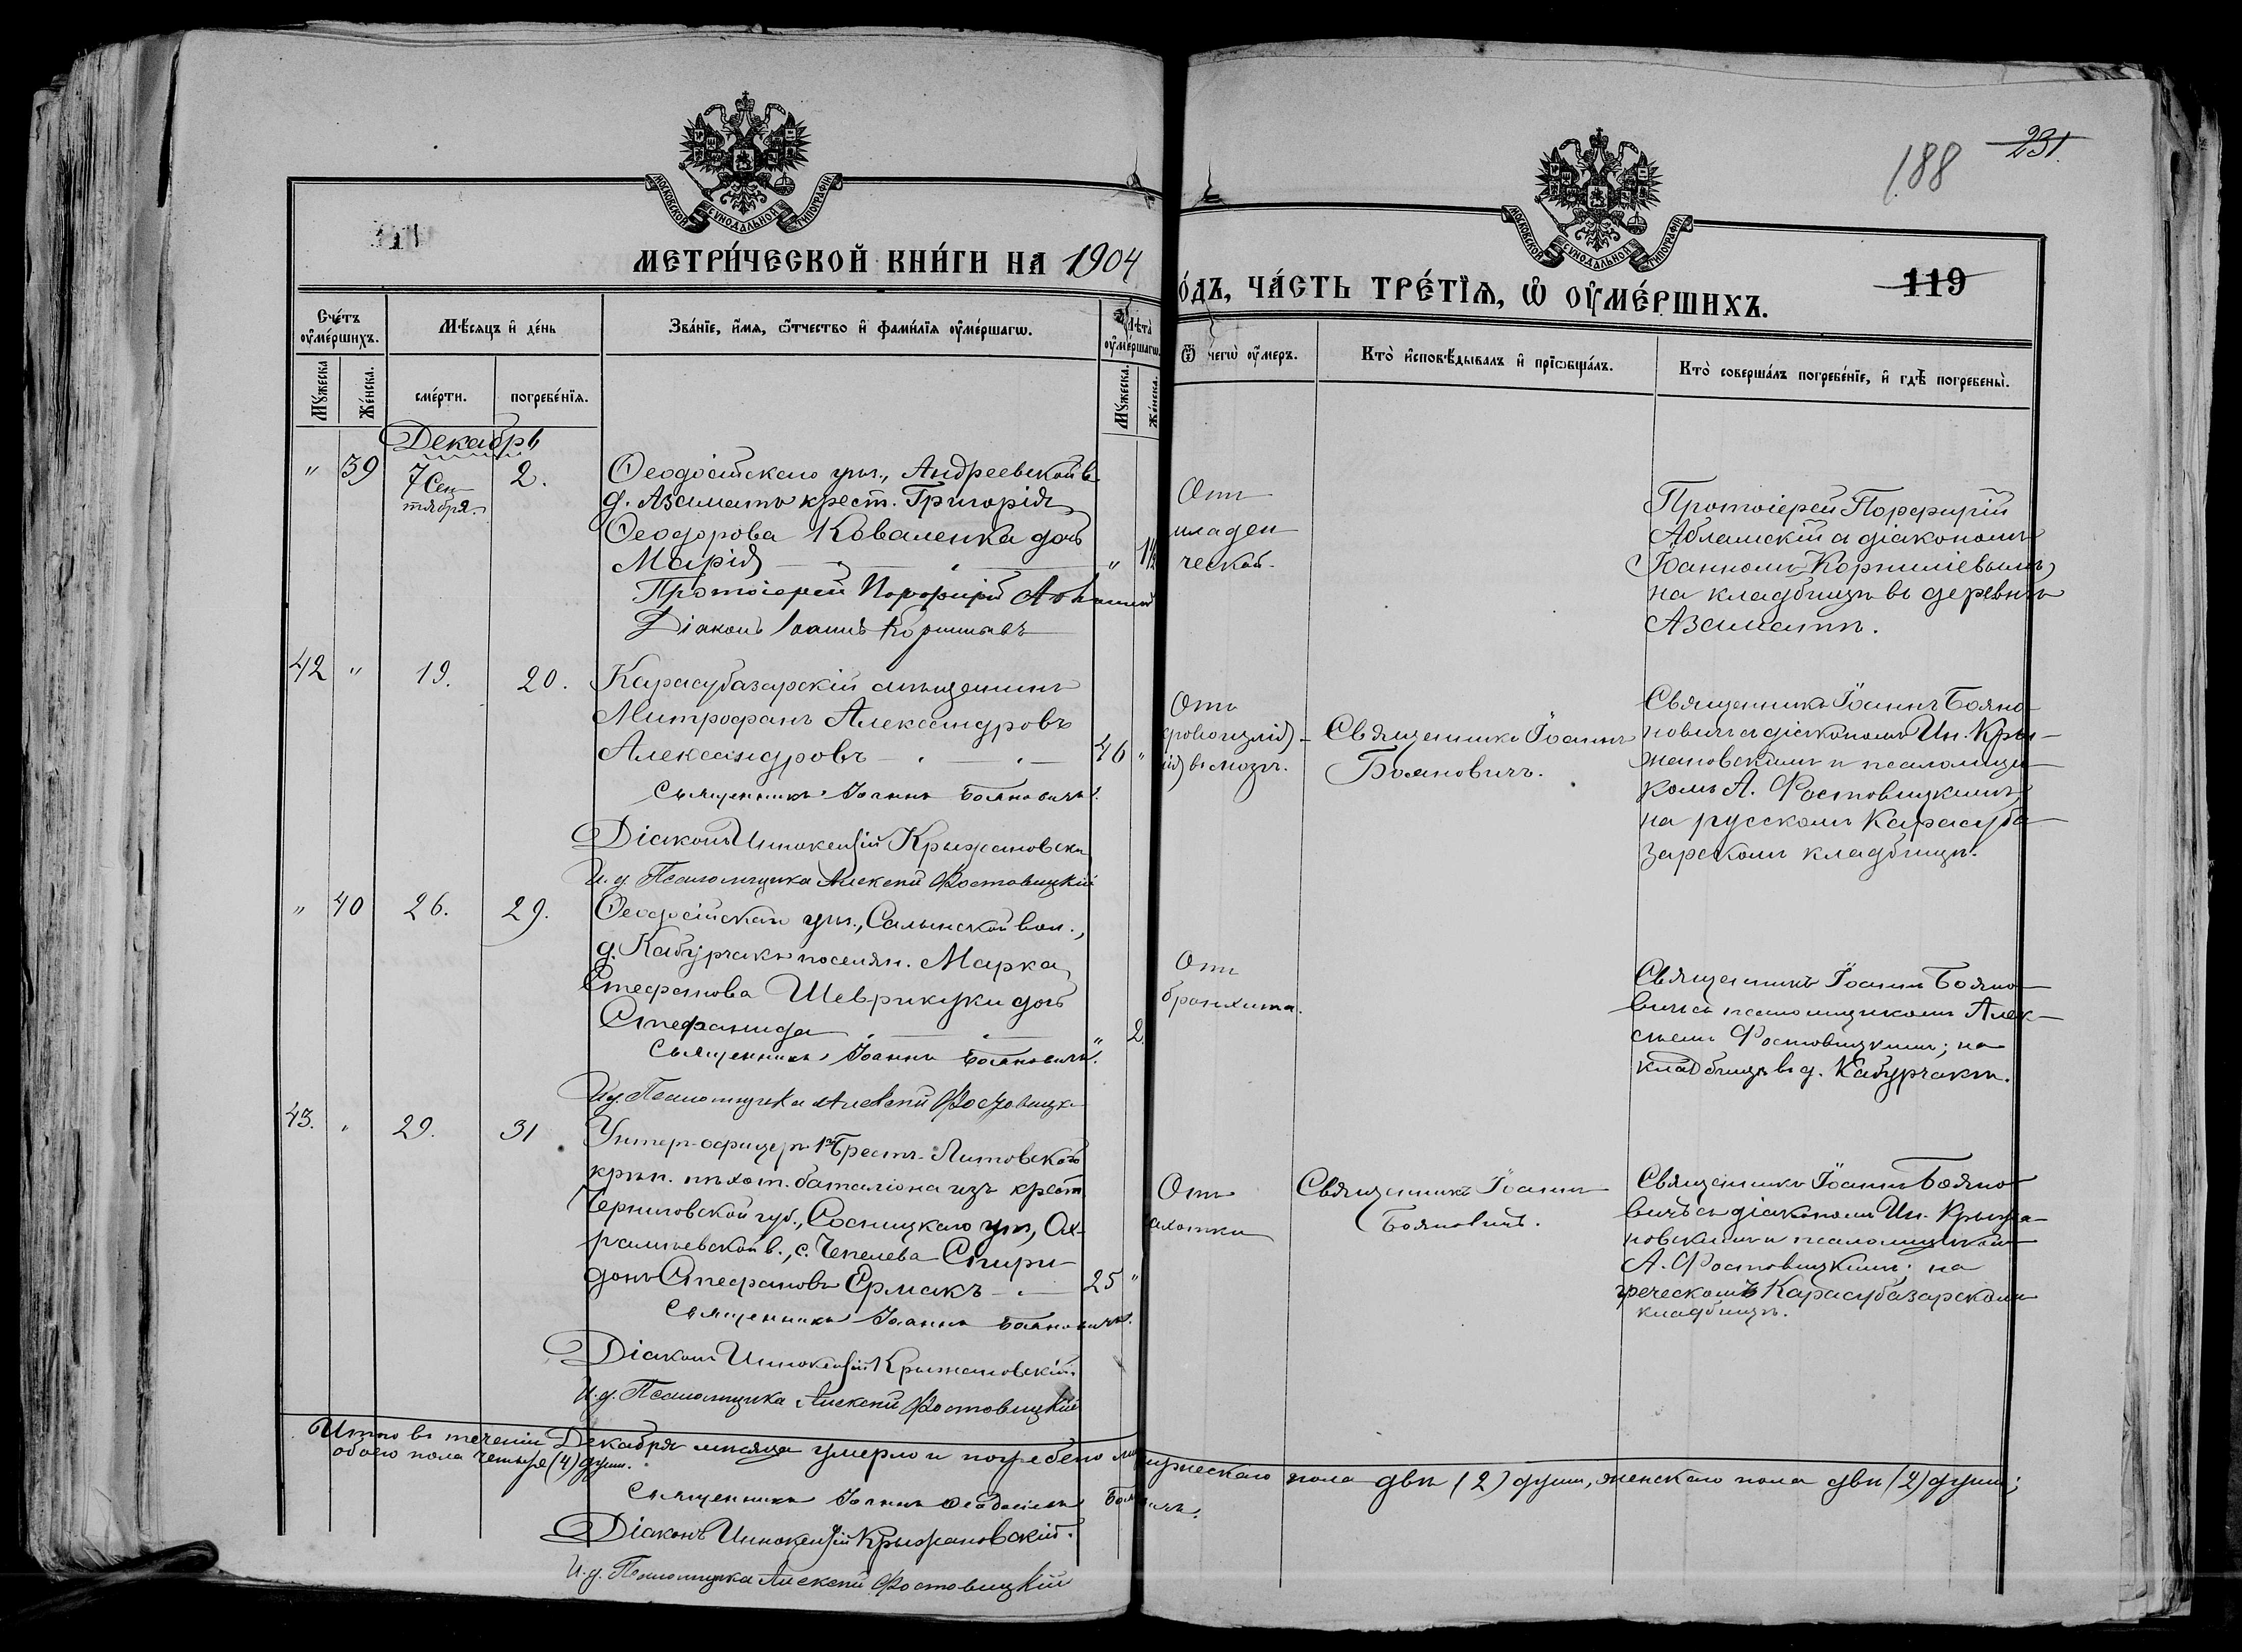 188
231.
МОСКОВСКОЙ СѴНОДАЛЬНОЙ ТИПОГРАФІИ
МОСКОВСКОЙ СѴНОДАЛЬНОЙ ТИПОГРАФІИ
МЕТРИ́ЧЕСКОЙ КНИ́ГИ НА 1904
О́ДЪ, ЧА́СТЬ ТРЕ́ТІѦ, Ѡ҆ ОУ҆МЕ́РШИХЪ.
119
Сче́тъ оу҆ме́ршихъ.
Мѣ́сяцъ и҆ де́нь
Зва́нїе, и҆́мя, ѻ҆́тчество и҆ фами́лїя оу҆ме́ршагѡ.
Лѣ́та оу҆ме́ршагѡ.
Ѿ чегѡ̀ оу҆́меръ.
Кто̀ и҆сповѣ́дывалъ и҆ прїѡбща́лъ.
Кто̀ соверша́лъ погребе́нїе, и҆ гдѣ̀ погребены̀.
Мꙋ́жеска.
Же́нска.
сме́рти.
погребе́нїя.
Мꙋ́жеска.
Же́нска.
Декабрь
" 39 7 Сен- 2.
тября.
Ѳеодосійскаго уѣз., Андреевской в.
д. Азаматъ крест. Григорія
Ѳеодорова Коваленка дочь
Марія " 1½
Протоіерей Порфирій
Діаконъ Іоаннъ Корниліевъ
Отъ
младен
ческой.
Протоіерей Порфирій
Абламскій съ діакономъ
Іоанномъ Корниліевымъ,
на кладбищѣ въ деревнѣ
Азаматъ.
42 " 19. 20.
Карасубазарскій мѣщанинъ
Митрофанъ Александровъ
Александровъ 46 "
Священникъ Іоаннъ Бояновичъ.
Діаконъ Иннокентій Крыжановскій
И. д. Псаломщика Алексѣй Фостовицкій
Отъ
кровоизлія-
нія въ мозгъ.
Священникъ Іоаннъ
Бояновичъ.
Священникъ Іоаннъ Бояно-
новичъ съ діакономъ Ин. Кры-
жановскимъ и псаломщи-
комъ А. Фостовицкимъ,
на русскомъ Карасуба-
зарскомъ кладбищѣ.
" 40 26. 29.
Ѳеодосійскаго уѣз., Салынской вол.,
д. Кабурчакъ поселян. Марка
Стефанова Шеврикуки дочь
Стефанида " 2.
Священникъ Іоаннъ Бояновичъ.
И. д. Псаломщика Алексѣй Фостовицкій
Отъ
бронхита.
Священникъ Іоаннъ Бояно-
вичъ съ псаломщикомъ Алек-
сѣемъ Фостовицкимъ; на
кладбищѣ въ д. Кабурчакъ.
43. " 29. 31
Унтеръ-офицеръ 1го Брестъ-Литовскаго
крѣп. пѣхот. баталіона изъ крест.
Черниговской губ., Сосницкаго уѣз, Ох-
рамѣевской в., с. Чепелева Спири-
донъ Стефановъ Ермакъ 25 "
Священникъ Іоаннъ Бояновичъ.
Діаконъ Иннокентій Крыжановскій.
И. д. Псаломщика Алексѣй Фостовицкій
Отъ
чахотки
Священникъ Іоаннъ
Бояновичъ.
Священникъ Іоаннъ Бояно-
вичъ съ діакономъ Ин. Крыжа-
новскимъ и псаломщикомъ
А. Фостовицкимъ; на
греческомъ Карасубазарскомъ
кладбищѣ.
Итого въ теченіи Декабря мѣсяца умерло и погребено мужескаго пола двѣ (2) души, женскаго пола двѣ (2) души;
обоего пола четыре (4) души.
Священникъ Іоаннъ Бояновичъ.
Діаконъ Иннокентій Крыжановскій.
И. д. Псаломщика Алексѣй Фостовицкій